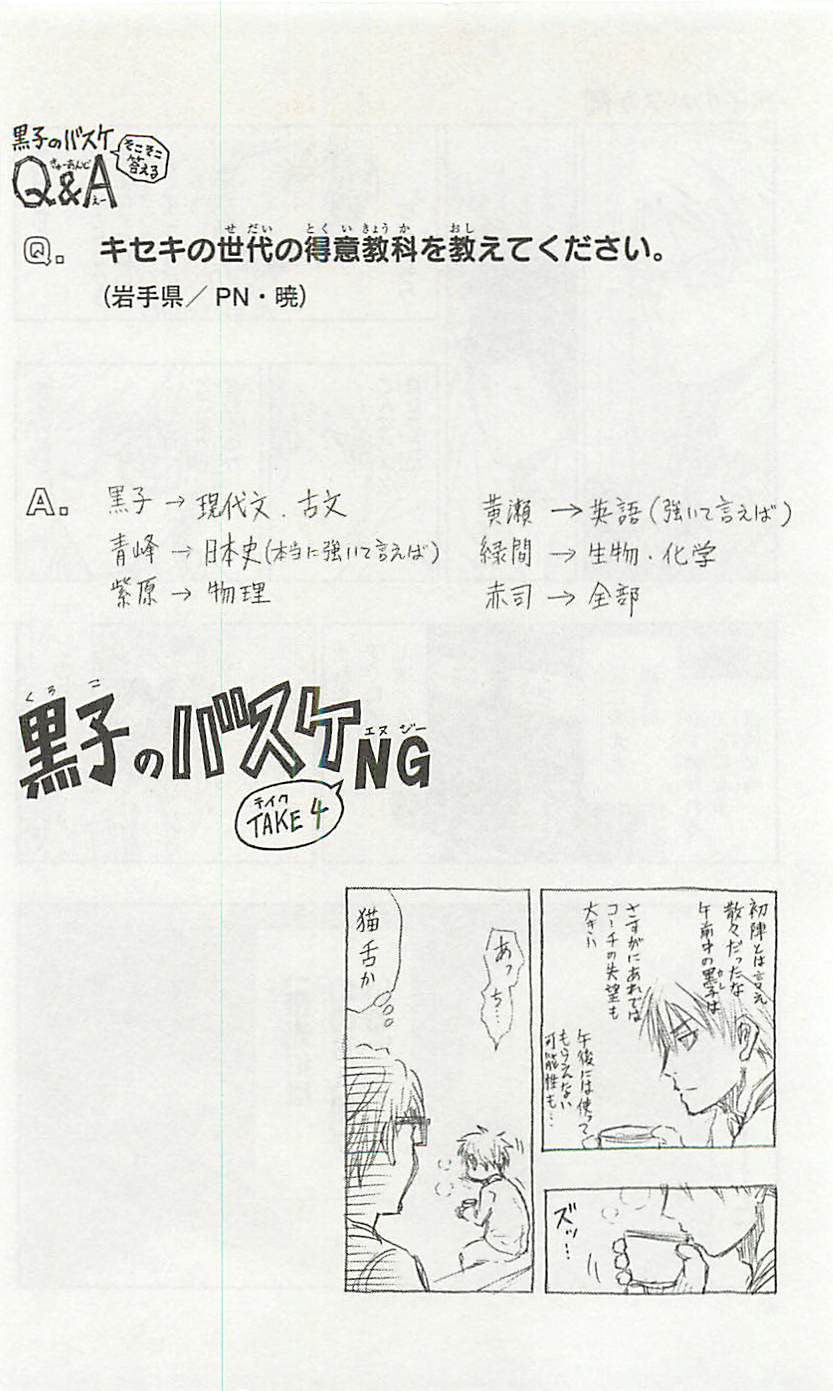 黒子のバスケ
そこそこ
答える
きゅーあんど
Q&A
えー
せだい とくいきょうか おし
Q. キセキの世代の得意教科を教えてください。
(岩手県／PN・暁)
A. 黒子→現代文．古文
青峰→日本史(本当に強いて言えば)
紫原→物理
黄瀬→英語(強いて言えば)
緑間→生物・化学
赤司→全部
くろこ
黒子のバスケ
エヌジー
NG
テイク
TAKE 4
初陣とは言え
散々だったな
午前中の黒子は
カレ
さすがにあれでは
コーチの失望も
大きい
午後には使って
もらえない
可能性も…
ズッ…
あっち…
猫舌か